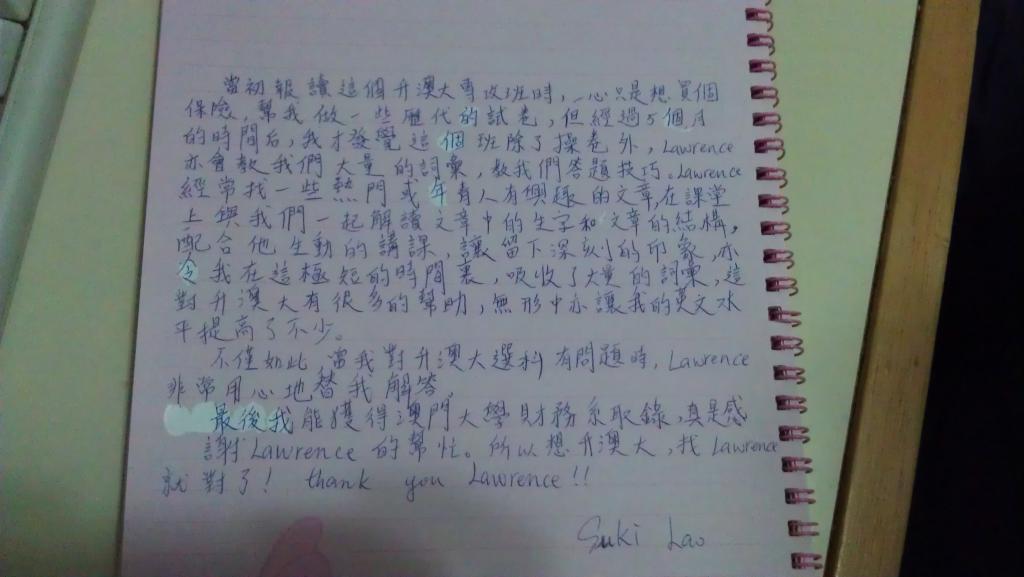 當初報讀這個升澳大專攻班時,一心只是想買個
保險,幫我做一些歷代的試卷,但經過5個月
的時間后,我才發覺這個班除了操卷外,Lawrence
亦會教我們大量的詞彙,教我們答題技巧。Lawrence
經常找一些熱門或年青人有興趣的文章,在課堂
上與我們一起解讀文章中的生字和文章的結構,
配合他生動的講課,讓留下深刻的印象,亦
令我在這極短的時間裏,吸收了大量的詞彙,這
對升澳大有很多的幫助,無形中亦讓我的英文水
平提高了不少。
不僅如此,當我對升澳大選科有問題時,Lawrence
非常用心地替我解答。
最後我能獲得澳門大學財務系取錄,真是感
謝Lawrence的幫忙。所以想升澳大,找Lawrence
就對了! thank you Lawrence!!
Suki Lao